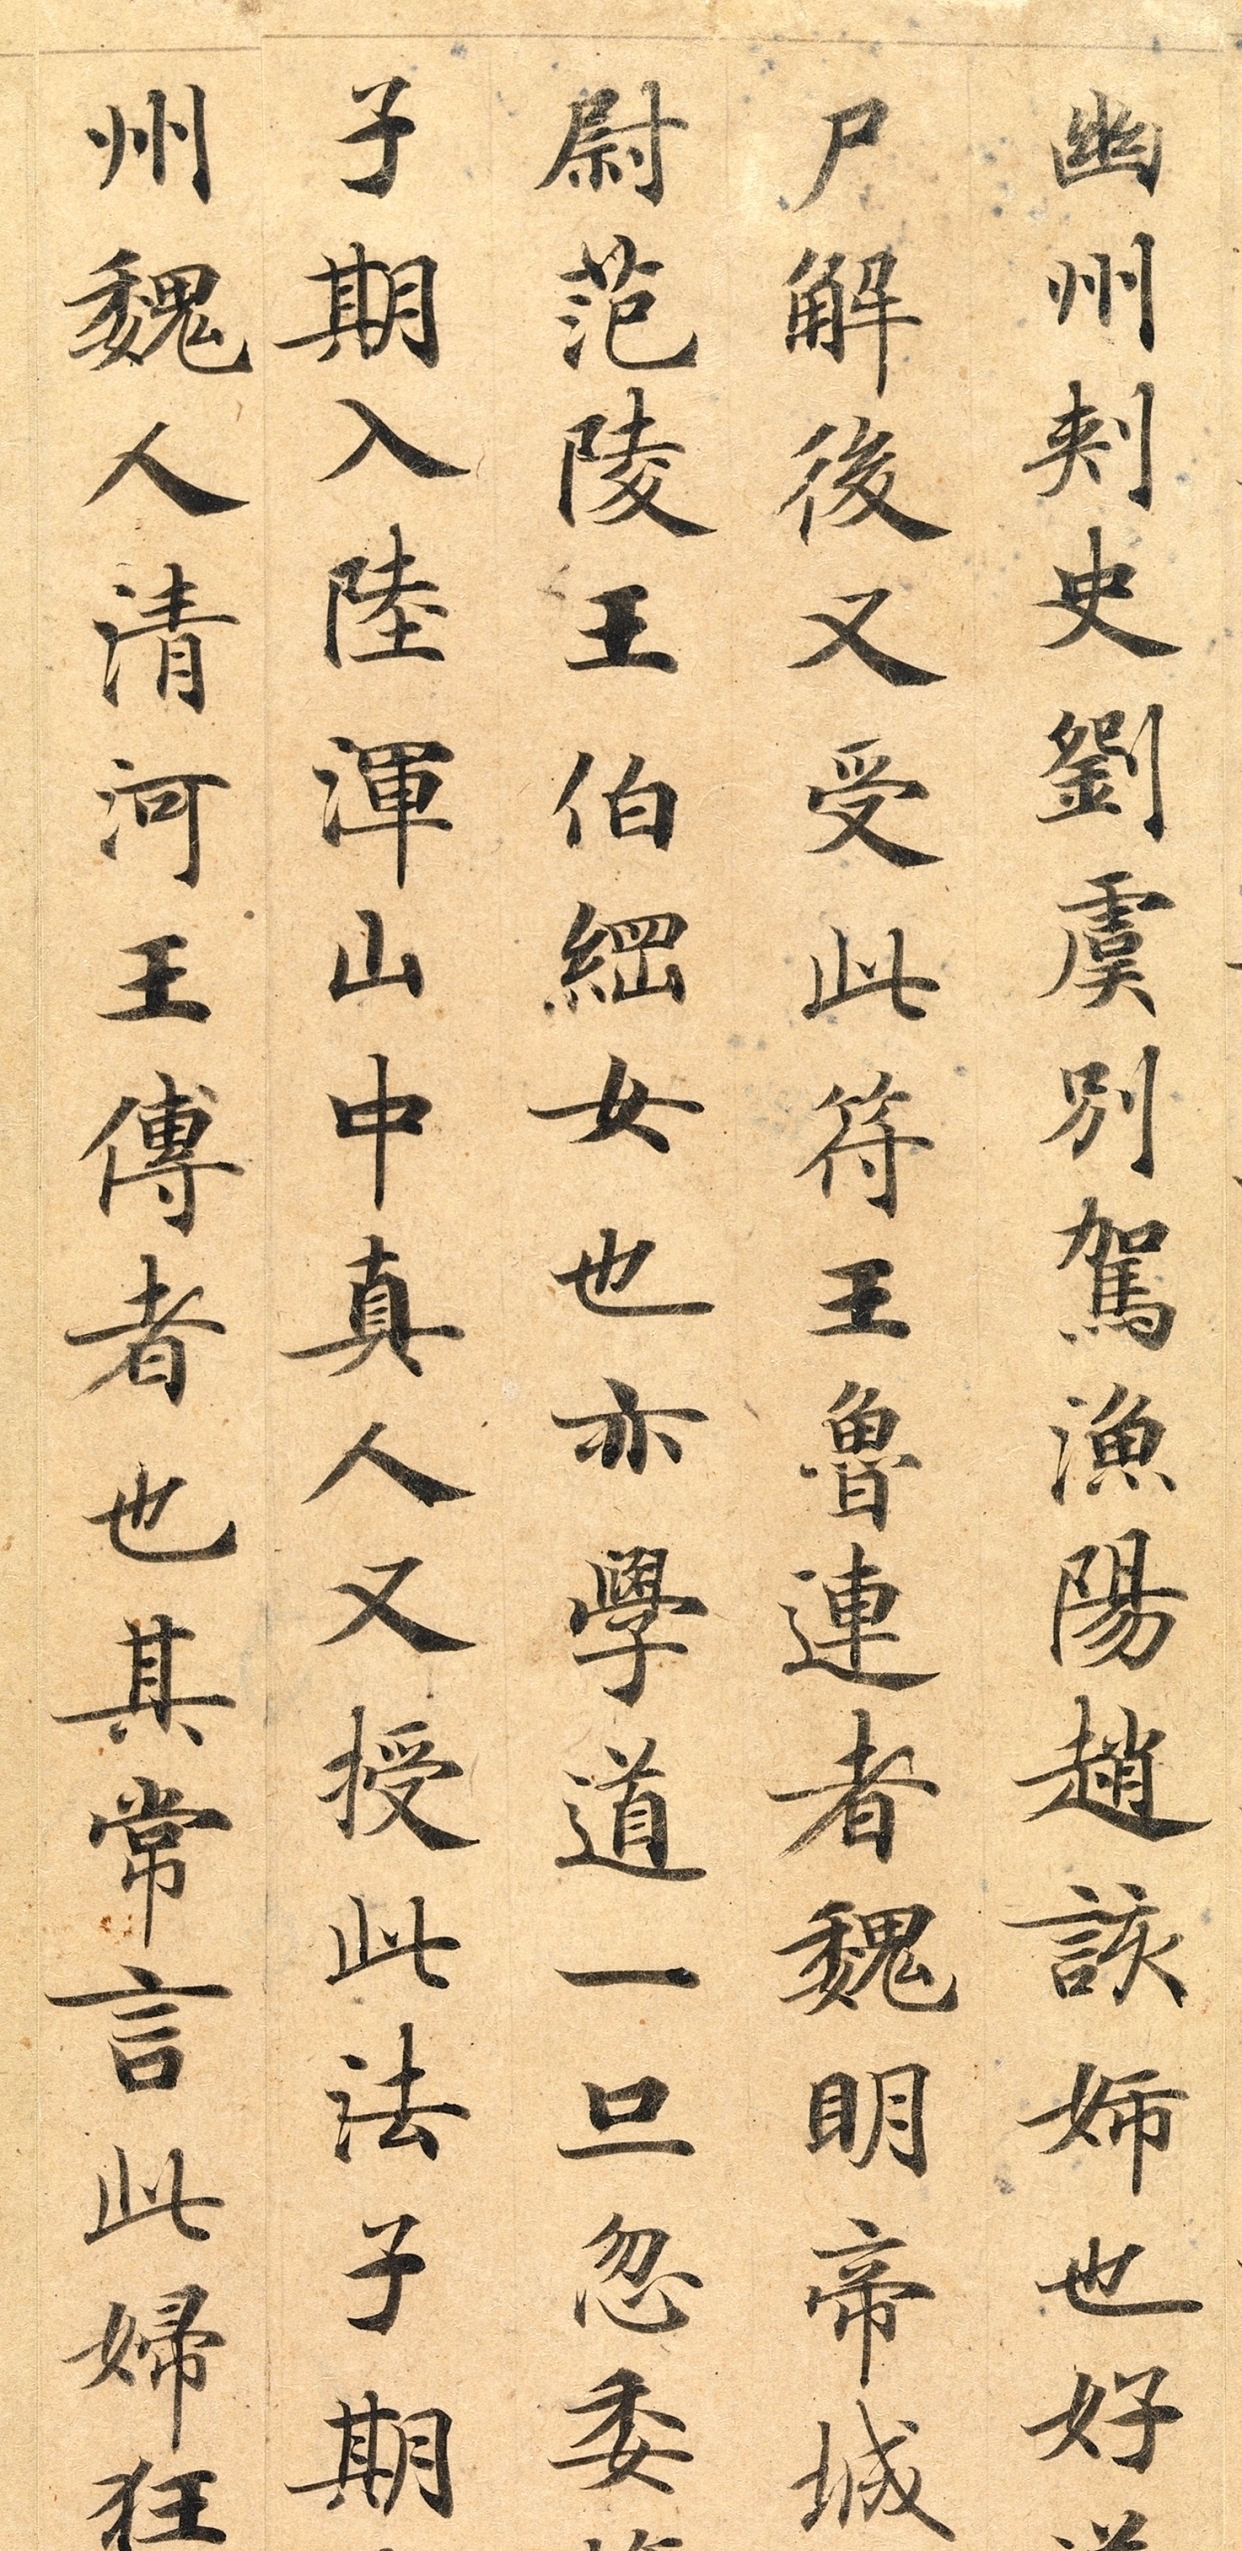 幽州刾史劉虞別駕漁陽趙該姉也好道
尸解後又受此符王魯連者魏明帝城
尉范陵王伯綱女也亦學道一旦忽委
子期入陸渾山中真人又授此法子期
州魏人清河王傅者也其常言此婦狂